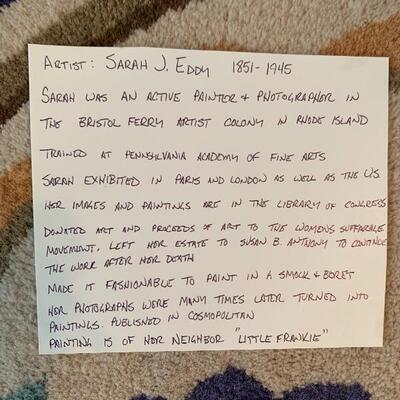 ARTIST: SARAH J. EDDY 1851-1945
SARAH WAS AN ACTIVE PAINTER & PHOTOGRAPHER IN
THE BRISTOL FERRY ARTIST COLONY IN RHODE ISLAND
TRAINED AT PENNSYLVANIA ACADEMY OF FINE ARTS
SARAH EXHIBITED IN PARIS AND LONDON AS WELL AS THE U.S.
HER IMAGES AND PAINTINGS ARE IN THE LIBRARY OF CONGRESS
DONATED ART AND PROCEEDS OF ART TO THE WOMENS SUFFERAGE
MOVEMENT. LEFT HER ESTATE TO SUSAN B. ANTHONY TO CONTINUE
THE WORK AFTER HER DEATH
MADE IT FASHIONABLE TO PAINT IN A SMOCK & BERET
HER PHOTOGRAPHS WERE MANY TIMES LATER TURNED INTO
PAINTINGS. PUBLISHED IN COSMOPOLITAN
PAINTING IS OF HER NEIGHBOR "LITTLE FRANKIE"